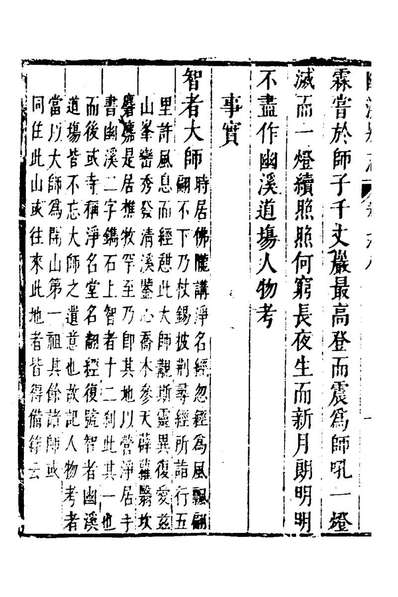 霖嘗於師子千丈巖最高登而震為師吼一燈
滅而一燈續照照何窮長夜生而新月朗明明
不盡作幽溪道場人物考
事實
智者大師時居佛隴講淨名經忽經為風飄翩
翩不下乃杖錫披荆尋經所詣行五
里許風息而經憇此大師觀斯靈異復愛茲
山峯巒秀發清溪鑒心喬木參天薜蘿翳坎
麏麚是居樵牧罕至乃即其地以營淨居手
書幽溪二字鐫石上智者十二刹此其一也
而後或寺稱淨名堂名翻經復號智者幽溪
道場皆不忘大師之遺意也故記人物考者
當以大師為開山第一祖其餘諸師或
同住此山或往來此地者皆得備錄云